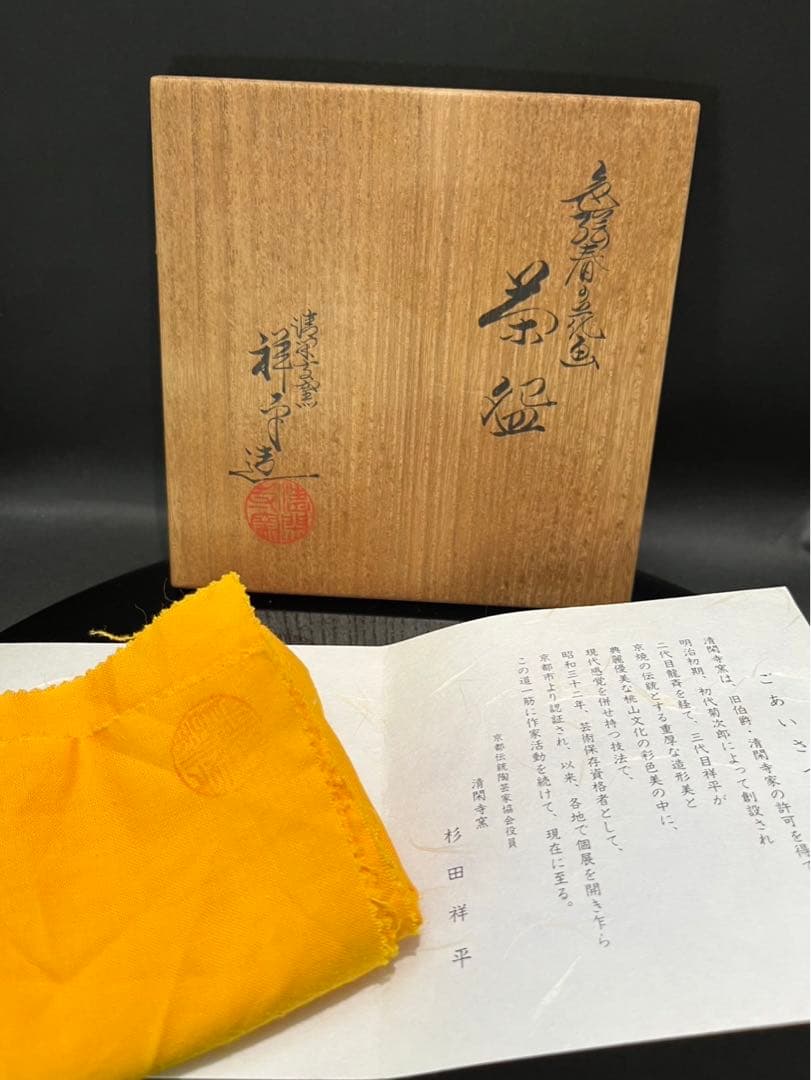 色絵春の花画
茶盌
清閑寺窯
祥平造
清閑寺窯
ごあいさ
清閑寺窯は、旧伯爵・清閑寺家の許可を得て
明治初期、初代菊次郎によって創設され
二代目龍斉を経て、三代目祥平が
京焼の伝統とする重厚な造形美と
典麗優美な桃山文化の彩色美の中に、
現代感覚を併せ持つ技法で、
昭和三十二年、芸術保存資格者として、
京都市より認証され、以来、各地で個展を開き乍ら
この道一筋に作家活動を続けて、現在に至る。
京都伝統陶芸家協会役員
清閑寺窯
杉田祥平